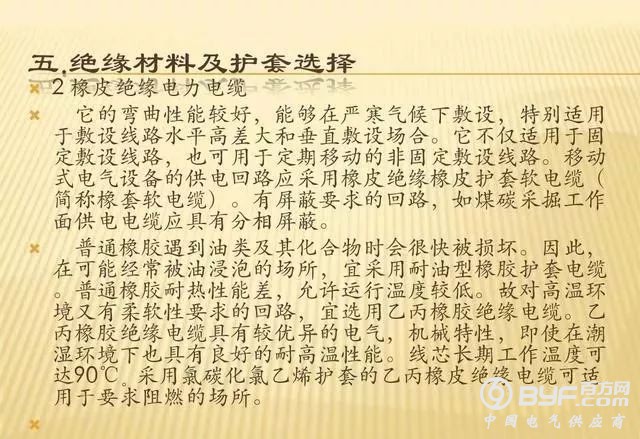 五.绝缘材料及护套选择
2橡皮绝缘电力电缆
它的弯曲性能较好，能够在严寒气候下敷设，特别适用
于敷设线路水平高差大和垂直敷设场合。它不仅适用于固
定敷设线路，也可用于定期移动的非固定敷设线路。移动
式电气设备的供电回路应采用橡皮绝缘橡皮护套软电缆（
简称橡套软电缆）。有屏蔽要求的回路，如煤碳采掘工作
面供电电缆应具有分相屏蔽。
普通橡胶遇到油类及其化合物时会很快被损坏。因此，
在可能经常被油浸泡的场所，宜采用耐油型橡胶护套电缆
。普通橡胶耐热性能差，允许运行温度较低。故对高温环
境又有柔软性要求的回路，宜选用乙丙橡胶绝缘电缆。乙
丙橡胶绝缘电缆具有较优异的电气，机械特性，即使在潮
湿环境下也具有良好的耐高温性能。线芯长期工作温度可
达90℃，采用氯碳化氯乙烯护套的乙丙橡皮绝缘电缆可适
用于要求阻燃的场所。
BYF百方网
.COM
中国电气供应商